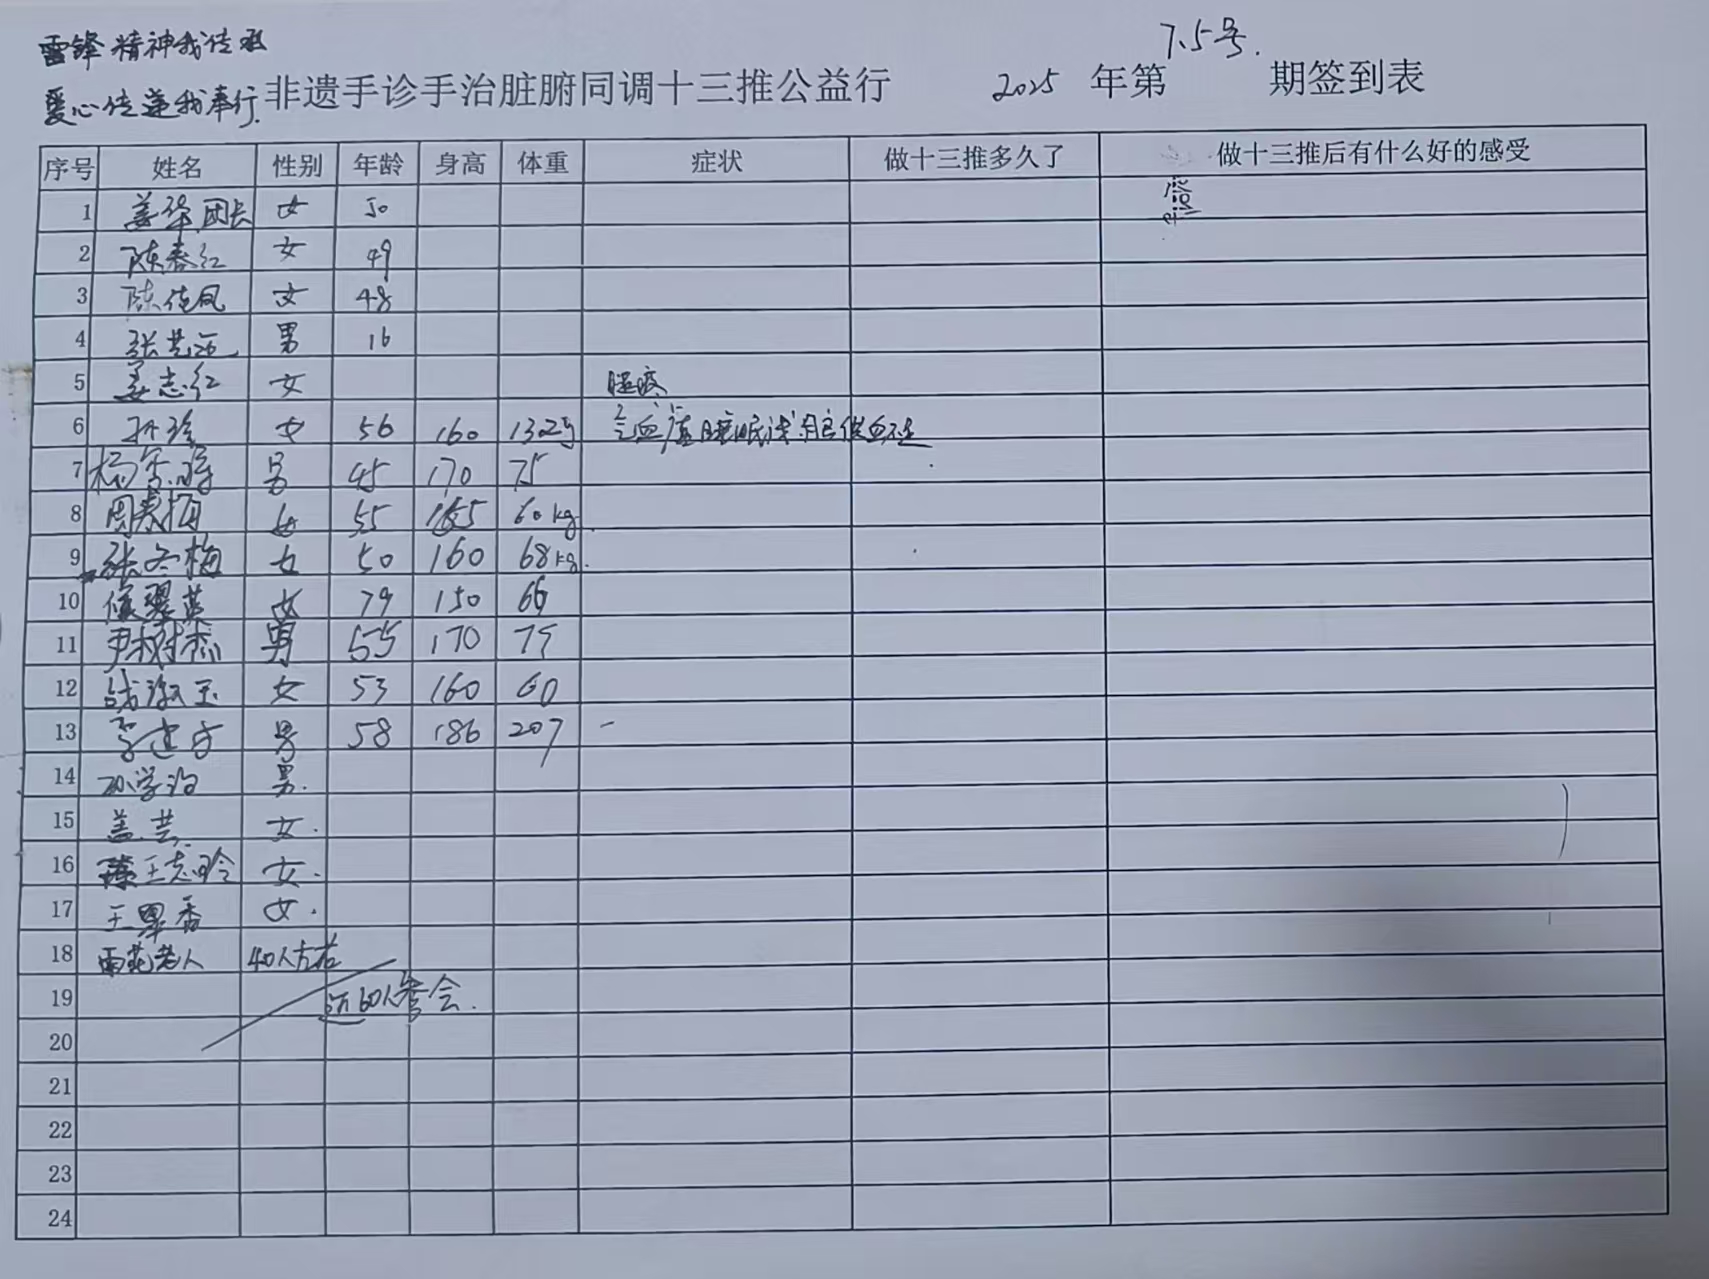 雷锋精神我传承
7.5号.
爱心传递我奉行. 非遗手诊手治脏腑同调十三推公益行 2025 年第 期签到表
序号 姓名 性别 年龄 身高 体重 症状 做十三推多久了 做十三推后有什么好的感受
1 姜华团长 女 50
2 陈春红 女 49
3 陈佳凤 女 48
4 张 男 16
5 姜志红 女 腿疼
6 孙 女 56 160 132斤 气血虚 睡眠浅
7 杨 男 45 170 75
8 周春梅 女 55 165 60kg
9 张冬梅 女 50 160 68kg
10 翠英 女 79 150 66
11 尹树杰 男 55 170 75
12 淑玉 女 53 160 60
13 男 58 186 207
14 孙学 男.
15 盖芸 女.
16 王志 女.
17 王翠香 女.
18 老人 40人左右
19 近60人参会.
20
21
22
23
24